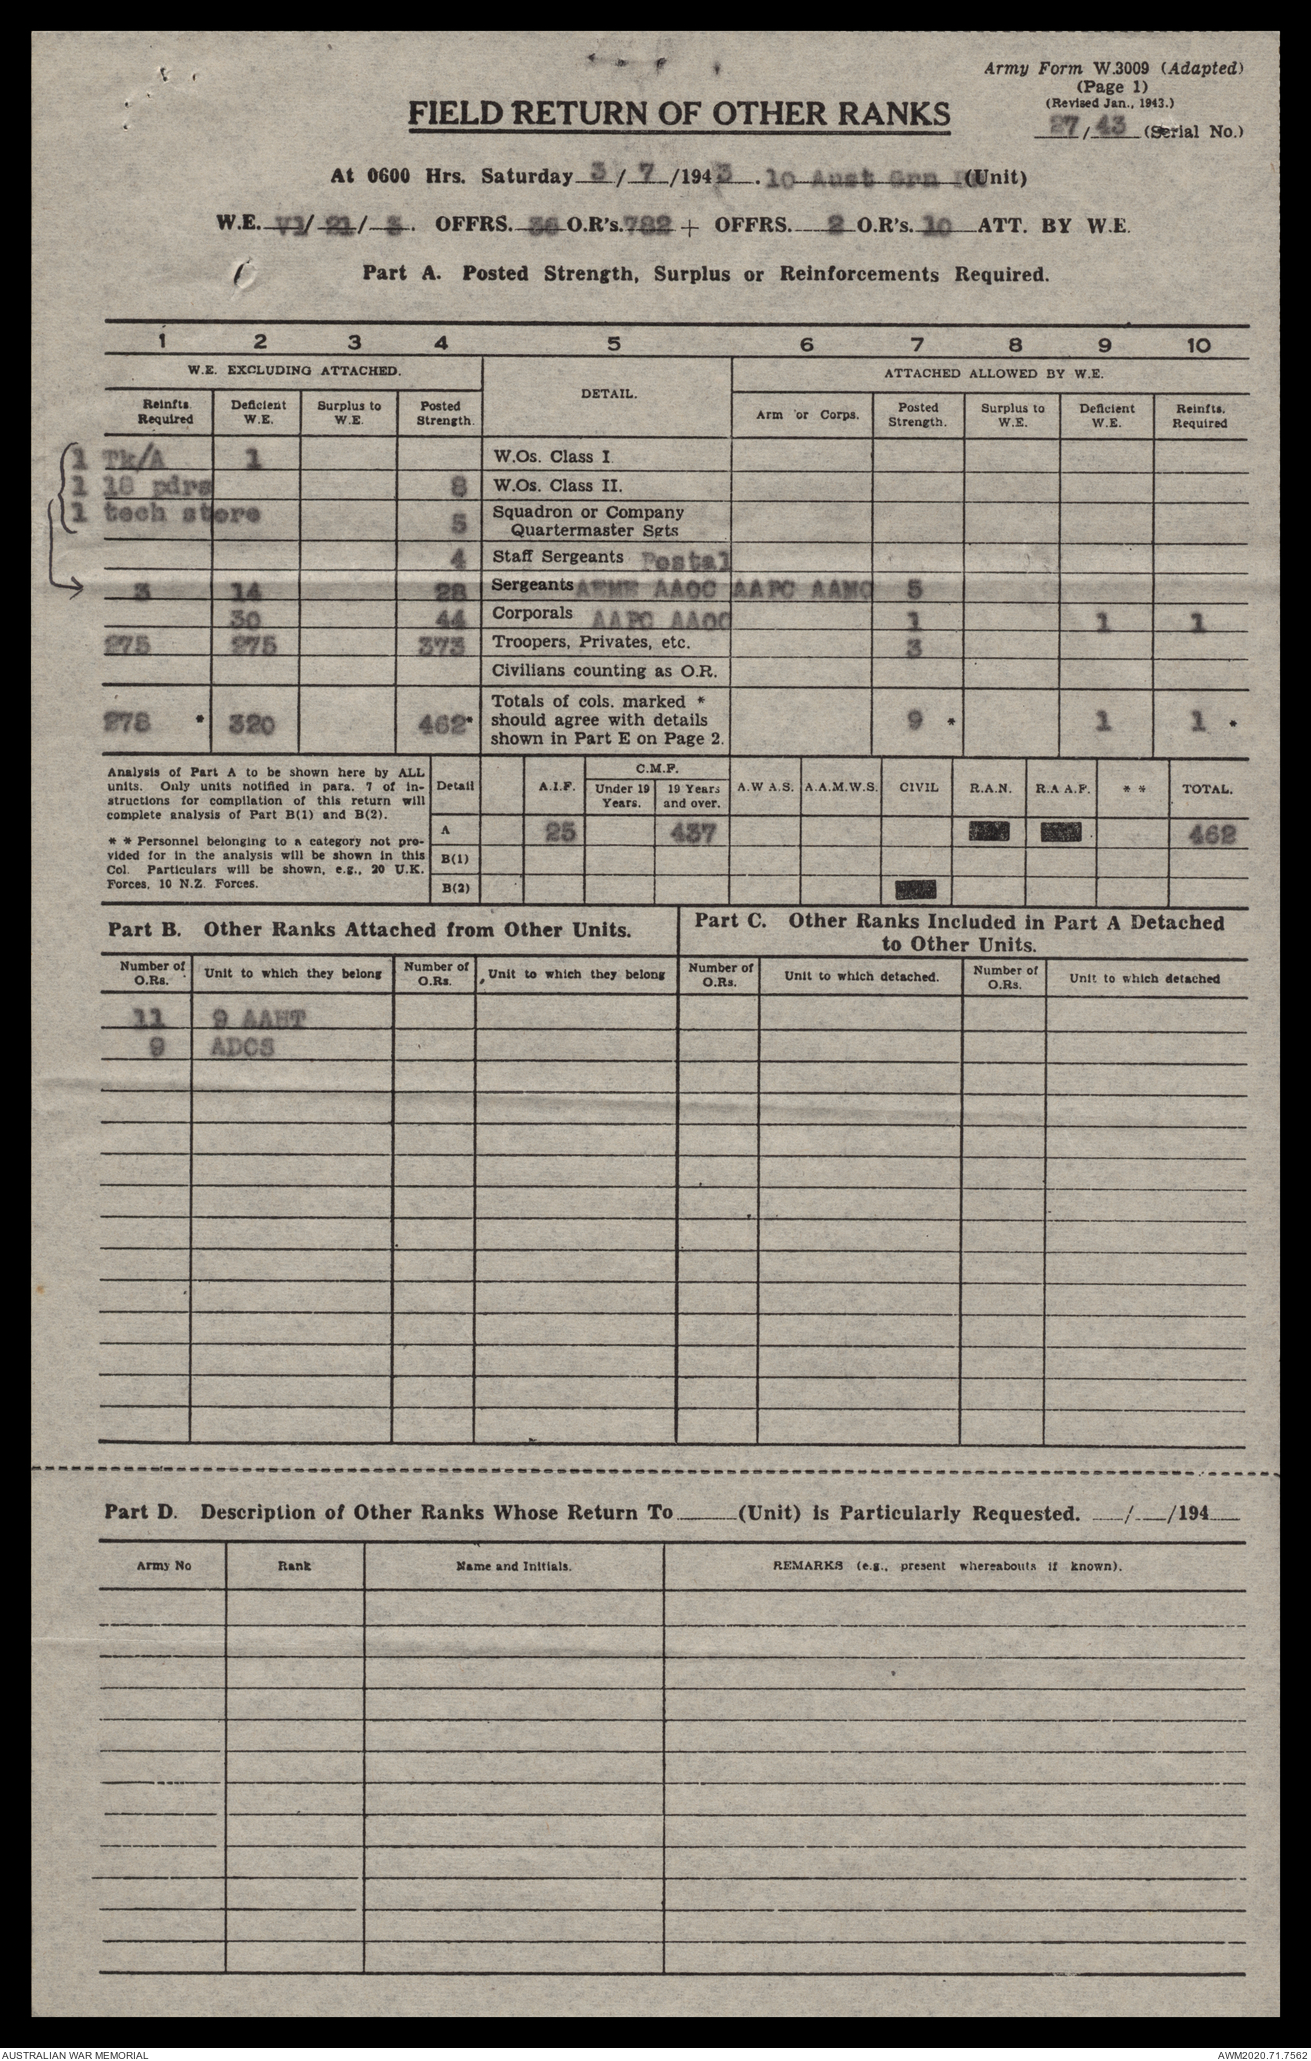 Army Form W.3009 (Adapted)
(Page 1)
(Revised Jan., 1943.)
27/43 (Serial No.)
FIELD RETURN OF OTHER RANKS
At 0600 Hrs. Saturday 3/7/1943. 10 Aust Grn (Unit)
W.E. VI/21/3. OFFRS. 36 O.R's. 782 + OFFRS. 2 O.R's. 10 ATT. BY W.E.
Part A. Posted Strength, Surplus or Reinforcements Required.
1 2 3 4 5 6 7 8 9 10
W.E. EXCLUDING ATTACHED. DETAIL. ATTACHED ALLOWED BY W.E.
Reinfts. Required Deficient W.E. Surplus to W.E. Posted Strength. Arm or Corps. Posted Strength. Surplus to W.E. Deficient W.E. Reinfts. Required
1 Tk/A 1 W.Os. Class I
1 18 pdrs 8 W.Os. Class II.
1 tech store 5 Squadron or Company
Quartermaster Sgts
4 Staff Sergeants Postal
3 14 28 Sergeants AEME AAOC AAPC AAMC 5
30 44 Corporals AAPC AAOC 1 1 1
275 275 373 Troopers, Privates, etc. 3
Civilians counting as O.R.
278 * 320 462* Totals of cols. marked * should agree with details shown in Part E on Page 2. 9 * 1 1 *
Analysis of Part A to be shown here by ALL
units. Only units notified in para. 7 of in-
structions for compilation of this return will
complete analysis of Part B(1) and B(2).
* * Personnel belonging to a category not pro-
vided for in the analysis will be shown in this
Col. Particulars will be shown, e.g., 20 U.K.
Forces, 10 N.Z. Forces.
Detail A.I.F. C.M.F. Under 19 Years. 19 Years and over. A.W.A.S. A.A.M.W.S. CIVIL R.A.N. R.A.A.F. * * TOTAL.
A 25 437 462
B(1)
B(2)
Part B. Other Ranks Attached from Other Units.
Part C. Other Ranks Included in Part A Detached
to Other Units.
Number of O.Rs. Unit to which they belong Number of O.Rs. Unit to which they belong Number of O.Rs. Unit to which detached. Number of O.Rs. Unit to which detached
11 9 AAHT
9 ADCS
Part D. Description of Other Ranks Whose Return To (Unit) is Particularly Requested. / /194
Army No Rank Name and Initials. REMARKS (e.g., present whereabouts if known).
AUSTRALIAN WAR MEMORIAL AWM2020.71.7562